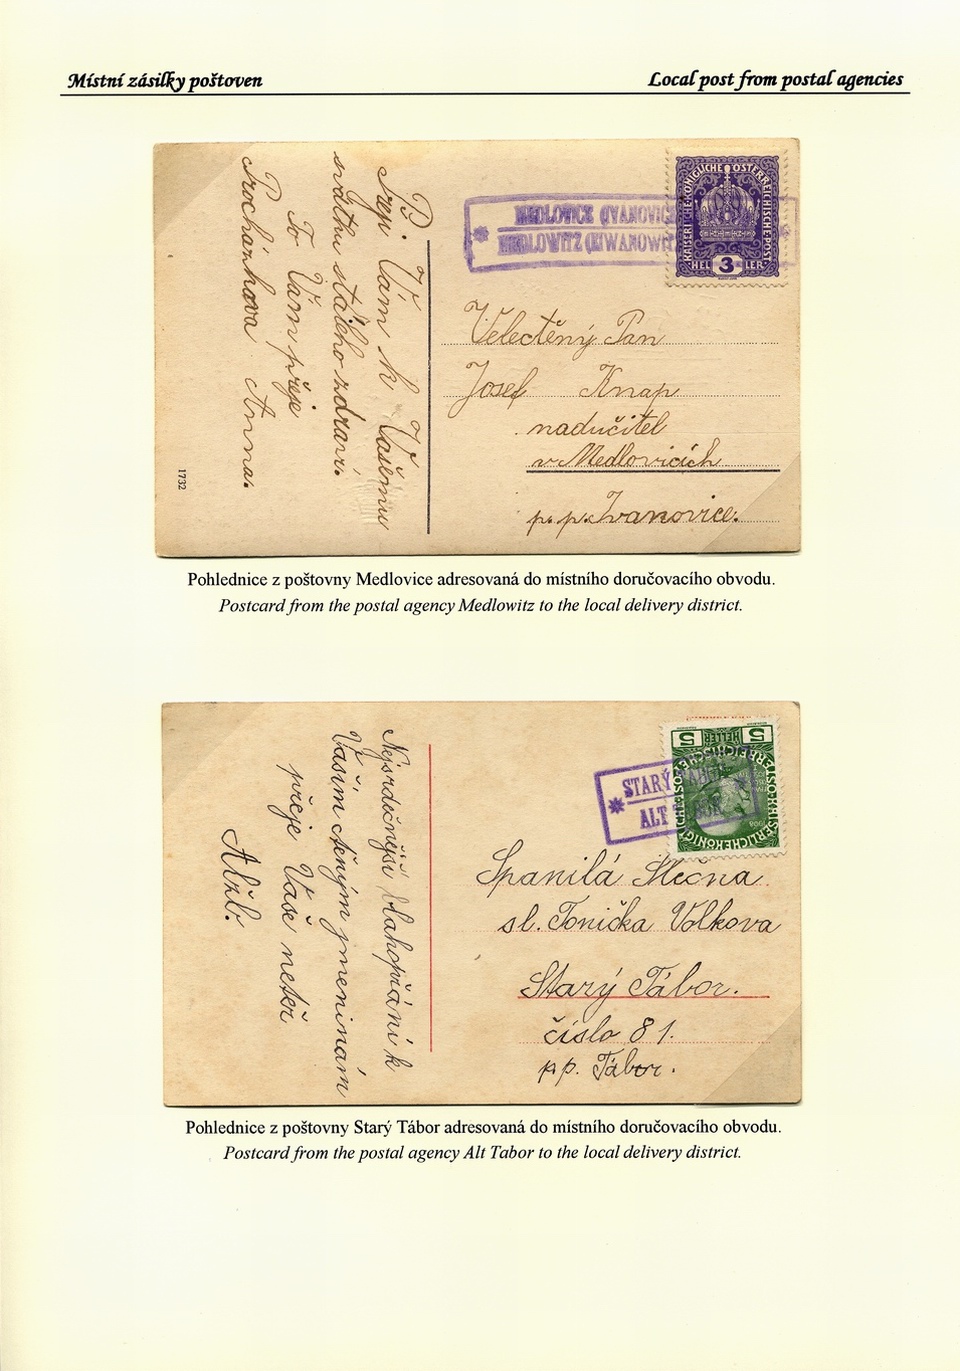 Místní zásilky poštoven
Local post from postal agencies
P. T.
Přeji Vám k Vašemu
svátku stálého zdraví.
To Vám přeje
Procházkova Anna.
1732
MEDLOWITZ (EIWANOWI
MEDLOVICE (IVANOVIC
KAISERLICHE KÖNIGLICHE ÖSTERREICHISCHE POST
HEL 3 LER
Velectěný Pan
Josef Knap
nadučitel
v Medlovicích
p. p. Ivanovice.
Pohlednice z poštovny Medlovice adresovaná do místního doručovacího obvodu.
Postcard from the postal agency Medlowitz to the local delivery district.
Nejsrdečnější blahopřání k
Vašim ctěným jmeninám
přeje Vaše neteř
Alžb.
5 HELLER 5
1908
STARÝ
ALT
Spanilá Slečna
sl. Tonička Volkova
Starý Tábor.
číslo 81.
p.p. Tábor.
Pohlednice z poštovny Starý Tábor adresovaná do místního doručovacího obvodu.
Postcard from the postal agency Alt Tabor to the local delivery district.